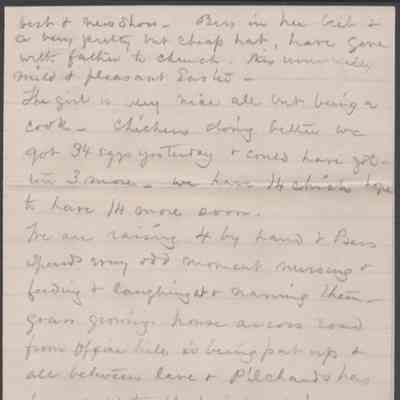 best & new shoes - Bess in her best &
a very pretty but cheap hat, have gone
with father to church. This unusually
mild & pleasant Easter -
The girl is very nice all but being a
cook - Chickens doing better we
got 34 eggs yesterday & could have got
3 more - we have 14 chicks hope
to have 14 more soon.
We are raising 4 by hand & Bess
spends every odd moment nursing &
feeding & laughing at & naming them -
Grass growing. house across road
from Office hill is being put up &
all between lane & Pilchards has